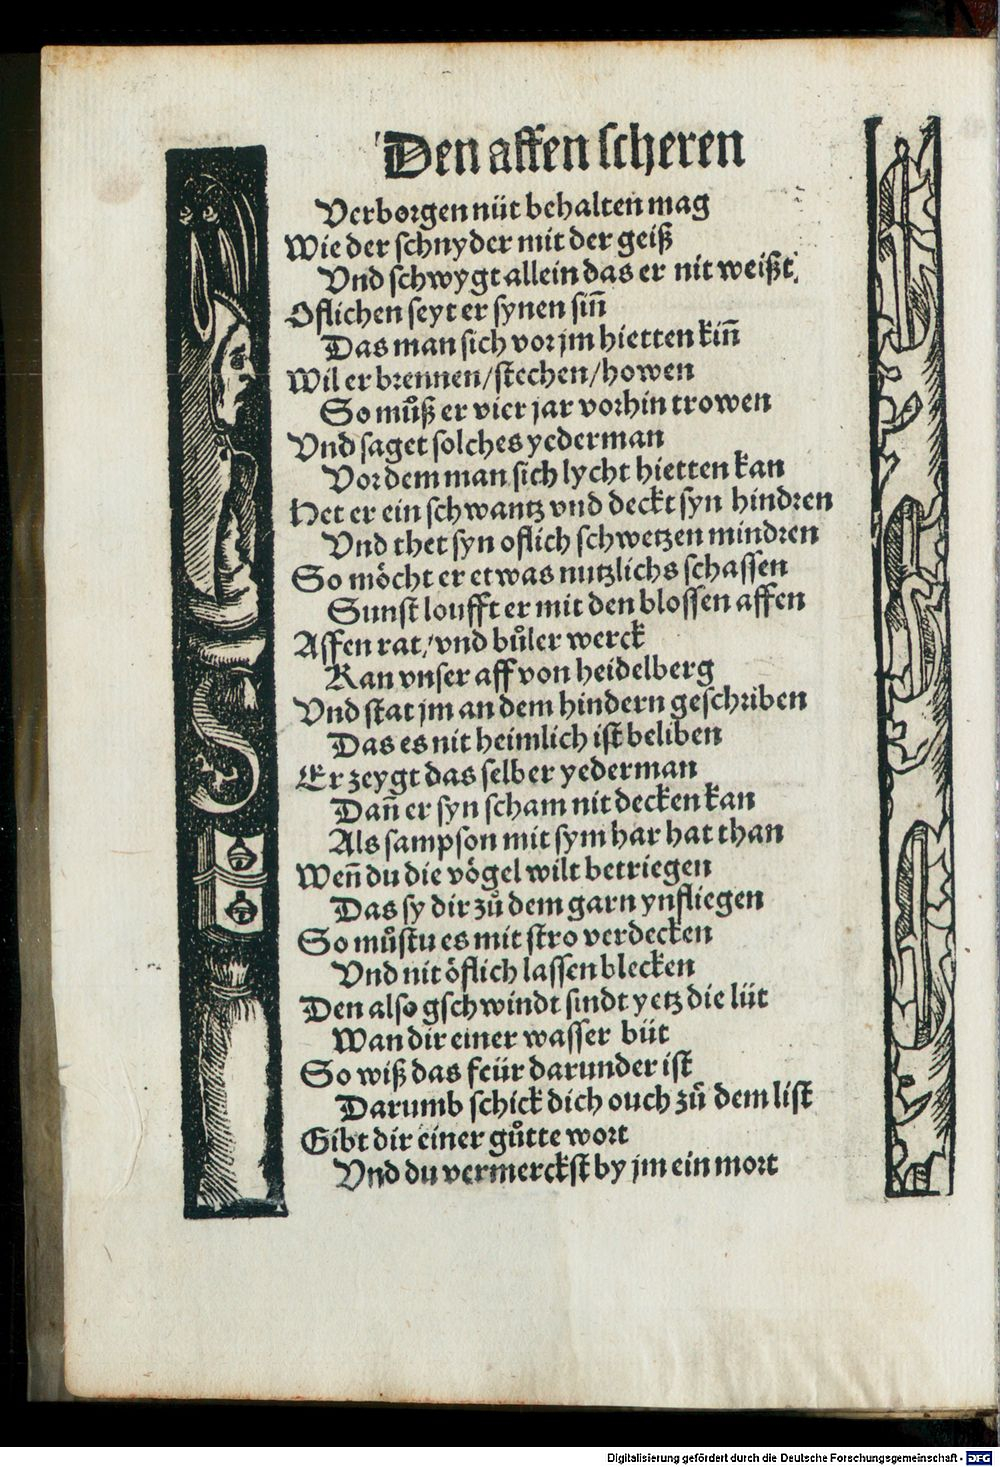 Den affen scheren
Verborgen nüt behalten mag
Wie der schnyder mit der geiß
Vnd schwygt allein das er nit weißt.
Oflichen seyt er synen sin̄
Das man sich vor jm hietten kin̄
Wil er brennen/stechen/howen
So můß er vier jar vorhin trowen
Vnd saget solches yederman
Vor dem man sich lycht hietten kan
Het er ein schwantz vnd deckt syn hindren
Vnd thet syn oflich schwetzen mindren
So möcht er etwas nutzlichs schaffen
Sunst loufft er mit den blossen affen
Affen rat/vnd bůler werck
Kan vnser aff von heidelberg
Vnd stat jm an dem hindern geschriben
Das es nit heimlich ist beliben
Er zeygt das selber yederman
Dan̄ er syn scham nit decken kan
Als sampson mit sym har hat than
Wen̄ du die vögel wilt betriegen
Das sy dir zů dem garn ynfliegen
So můstu es mit stro verdecken
Vnd nit öflich lassen blecken
Den also gschwindt sindt yetz die lüt
Wan dir einer wasser büt
So wiß das feür darunder ist
Darumb schick dich ouch zů dem list
Gibt dir einer gůtte wort
Vnd du vermerckst by jm ein mort
Digitalisierung gefördert durch die Deutsche Forschungsgemeinschaft - DFG